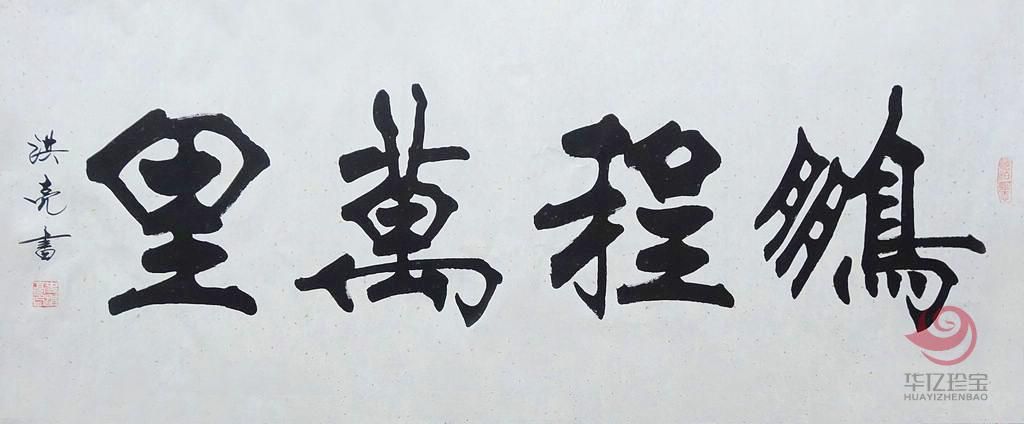 鵬程萬里
洪亮書
华亿珍宝
HUAYIZHENBAO